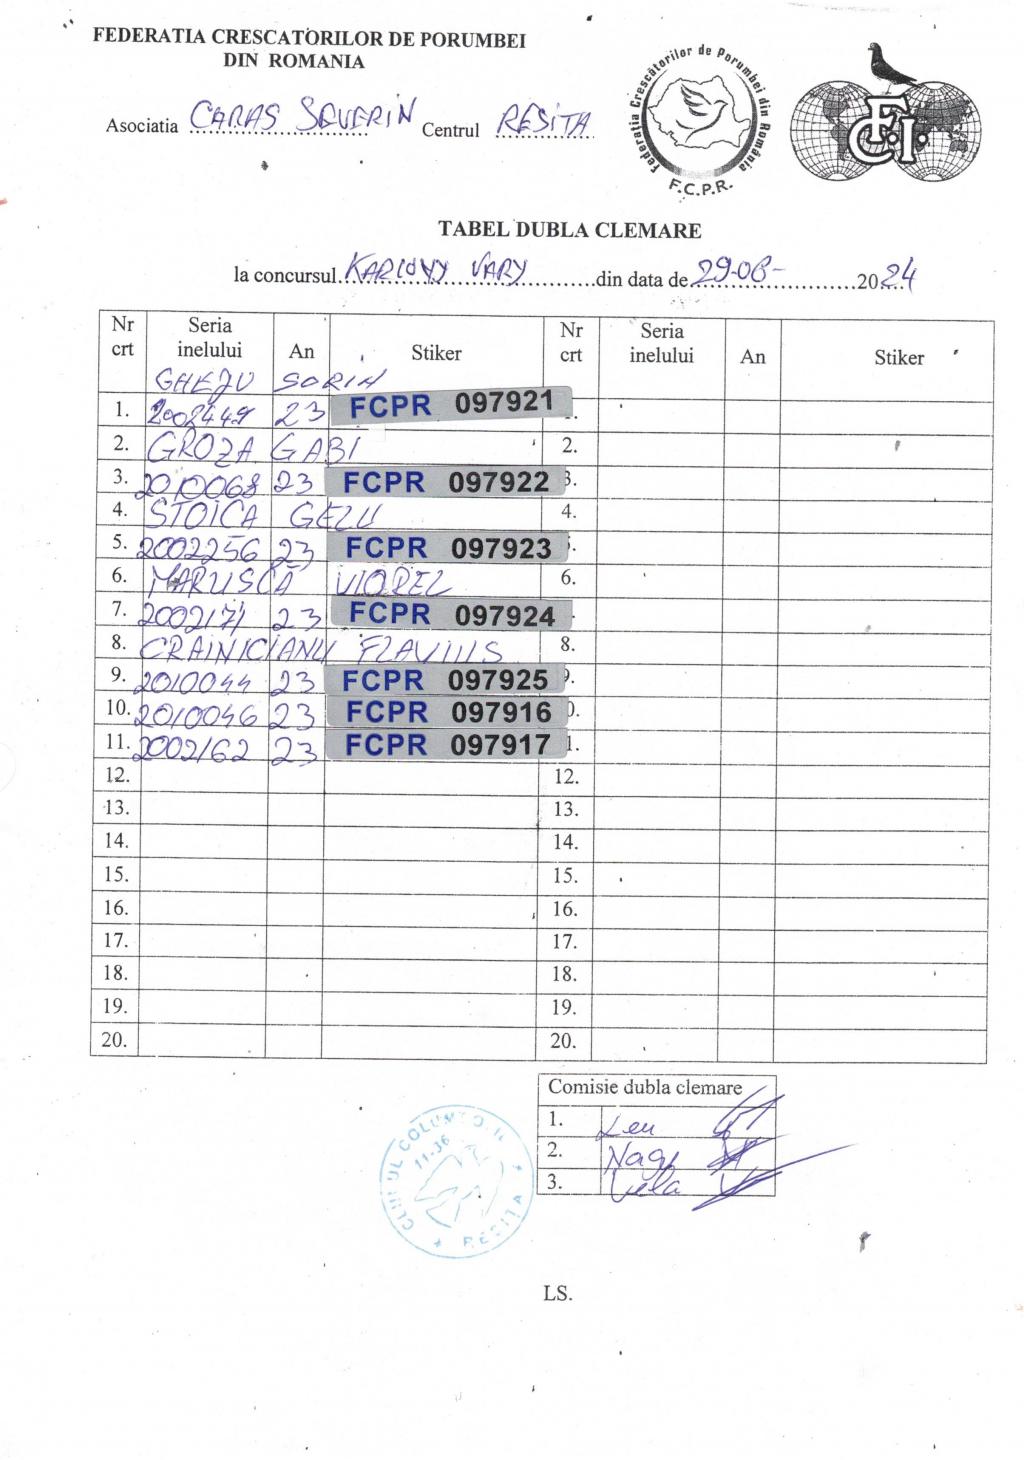 FEDERATIA CRESCATORILOR DE PORUMBEI
DIN ROMANIA
Asociatia CARAS SEVERIN Centrul RESITA
Federația Crescătorilor de Porumbei din România
F.C.P.R.
F.C.I.
TABEL DUBLA CLEMARE
la concursul KARLOVY VARY din data de 29-06- 2024
Nr crt Seria inelului An Stiker Nr crt Seria inelului An Stiker
GHEJU SORIN
1. 2002449 23 FCPR 097921 1.
2. GROZA GABI 2.
3. 2010068 23 FCPR 097922 3.
4. STOICA GELU 4.
5. 2002256 23 FCPR 097923
6. MARUSCĂ VIOREL 6.
7. 2002171 23 FCPR 097924
8. CRAINICIANU FLAVIUS 8.
9. 2010044 23 FCPR 097925 9.
10. 2010046 23 FCPR 097916 0.
11. 2002162 23 FCPR 097917 1.
12. 12.
13. 13.
14. 14.
15. 15.
16. 16.
17. 17.
18. 18.
19. 19.
20. 20.
Comisie dubla clemare
1. Leu
2. Nagy
3. Vela
CLUBUL COLUMBOFIL
11-36
RESIȚA
LS.